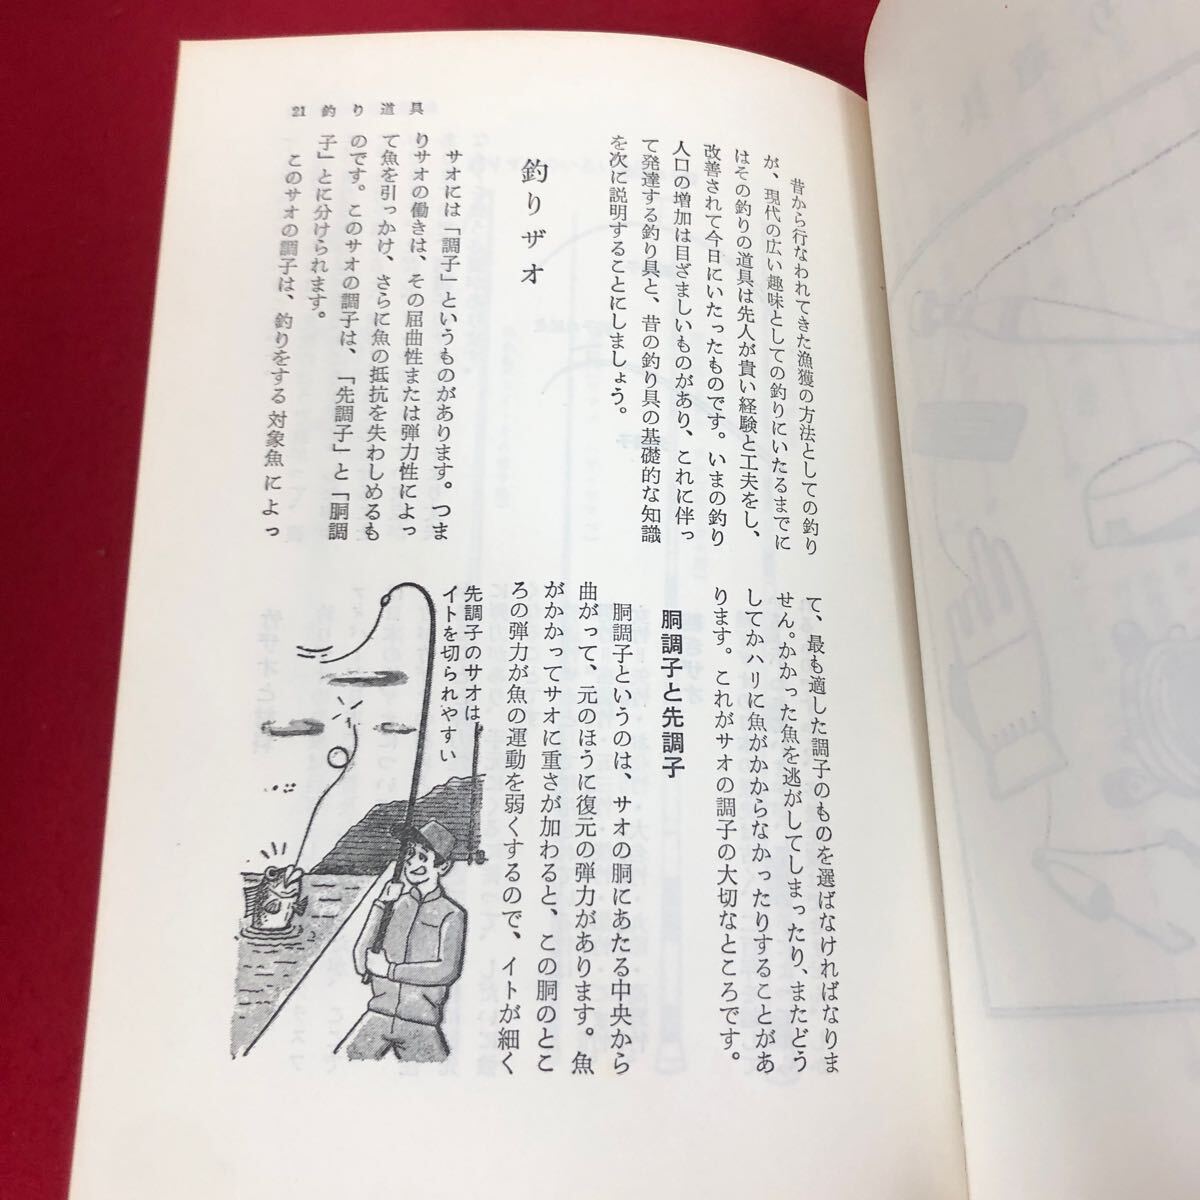 21 釣り道具
昔から行なわれてきた漁獲の方法としての釣り
が、現代の広い趣味としての釣りにいたるまでに
はその釣りの道具は先人が貴い経験と工夫をし、
改善されて今日にいたったものです。いまの釣り
人口の増加は目ざましいものがあり、これに伴っ
て発達する釣り具と、昔の釣り具の基礎的な知識
を次に説明することにしましょう。
釣りザオ
サオには「調子」というものがあります。つま
りサオの働きは、その屈曲性または弾力性によっ
て魚を引っかけ、さらに魚の抵抗を失わしめるも
のです。このサオの調子は、「先調子」と「胴調
子」とに分けられます。
このサオの調子は、釣りをする対象魚によっ
て、最も適した調子のものを選ばなければなりま
せん。かかった魚を逃がしてしまったり、またどう
してかハリに魚がかからなかったりすることがあ
ります。これがサオの調子の大切なところです。
胴調子と先調子
胴調子というのは、サオの胴にあたる中央から
曲がって、元のほうに復元の弾力があります。魚
がかかってサオに重さが加わると、この胴のとこ
ろの弾力が魚の運動を弱くするので、イトが細く
先調子のサオは
イトを切られやすい